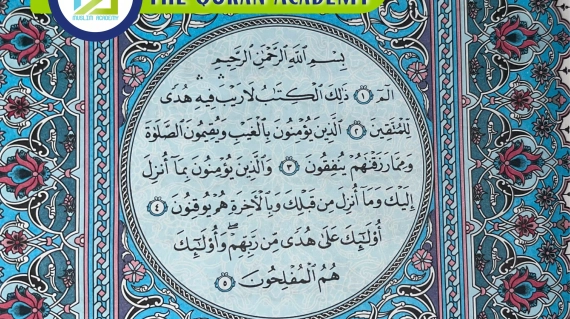 THE QURAN ACADEMY
MUSLIM ACADEMY
بِسْمِ اللَّهِ الرَّحْمَٰنِ الرَّحِيمِ
الٓمٓ ١ ذَٰلِكَ الْكِتَٰبُ لَا رَيْبَ ۛ فِيهِ ۛ هُدًى
لِلْمُتَّقِينَ ٢ الَّذِينَ يُؤْمِنُونَ بِالْغَيْبِ وَيُقِيمُونَ الصَّلَوٰةَ
وَمِمَّا رَزَقْنَٰهُمْ يُنفِقُونَ ٣ وَالَّذِينَ يُؤْمِنُونَ بِمَآ أُنزِلَ
إِلَيْكَ وَمَآ أُنزِلَ مِن قَبْلِكَ وَبِالْأَخِرَةِ هُمْ يُوقِنُونَ ٤
أُوْلَٰٓئِكَ عَلَىٰ هُدًى مِّن رَّبِّهِمْ ۖ وَأُوْلَٰٓئِكَ
هُمُ الْمُفْلِحُونَ ٥